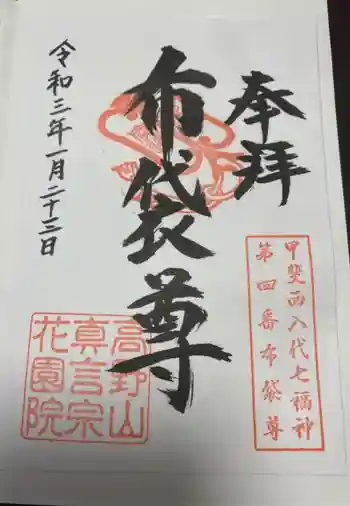 奉拝
甲斐西八代七福神
第四番布袋尊
布袋尊
令和三年一月二十三日
高野山
真言宗
花園院